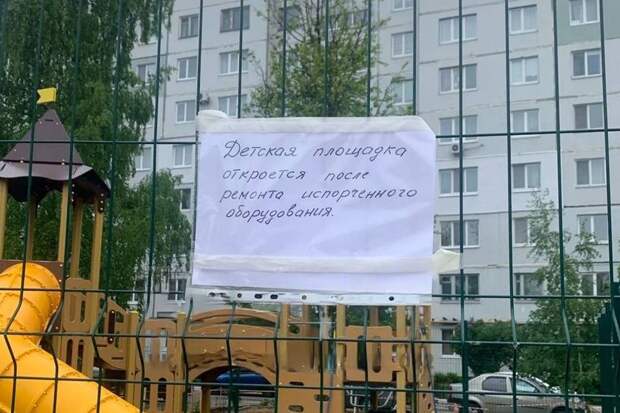 Детская площадка
откроется после
ремонта испорченного
оборудования.